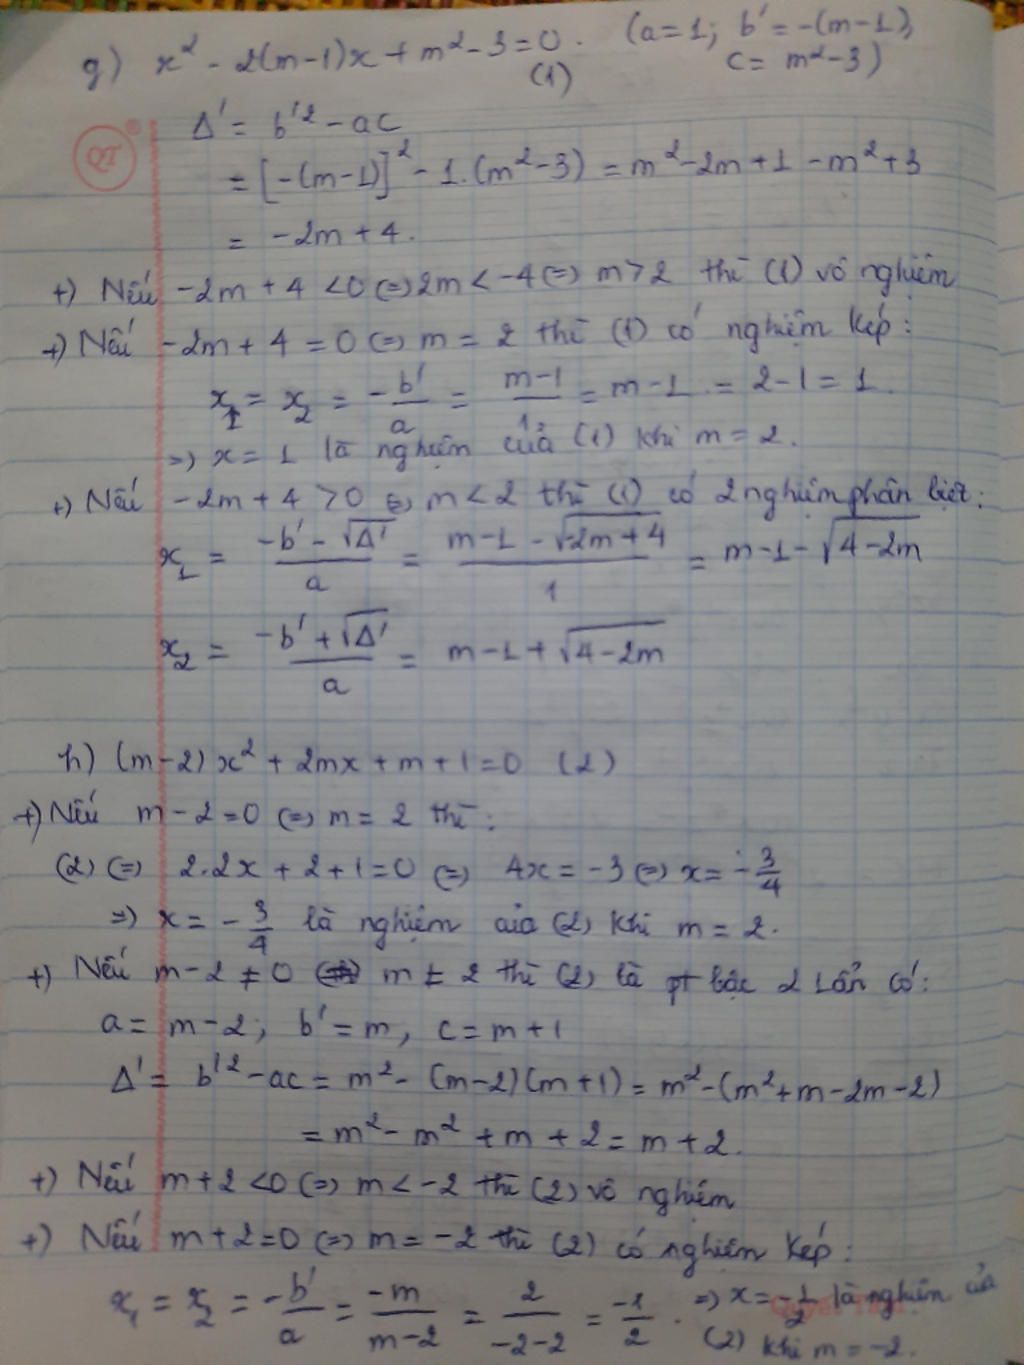 g) x² - 2(m-1)x + m² - 3 = 0. (a=1; b' = -(m-1),
(1) c = m² - 3)
Δ' = b'² - ac
QT
= [-(m-1)]² - 1.(m²-3) = m² - 2m + 1 - m² + 3
= -2m + 4.
+) Nếu -2m + 4 < 0 (=) 2m < -4 (=) m > 2 thì (1) vô nghiệm
+) Nếu -2m + 4 = 0 (=) m = 2 thì (1) có nghiệm kép:
x₁ = x₂ = -b'/a = m-1/1 = m-1 = 2-1 = 1.
=) x = 1 là nghiệm của (1) khi m = 2.
+) Nếu -2m + 4 > 0 (=) m < 2 thì (1) có 2 nghiệm phân biệt:
x₁ = -b' - √Δ'/a = m-1 - √-2m+4/1 = m-1 - √4-2m
x₂ = -b' + √Δ'/a = m-1 + √4-2m
h) (m-2)x² + 2mx + m + 1 = 0 (2)
+) Nếu m - 2 = 0 (=) m = 2 thì:
(2) (=) 2.2x + 2 + 1 = 0 (=) 4x = -3 (=) x = -3/4
=) x = -3/4 là nghiệm của (2) khi m = 2.
+) Nếu m - 2 ≠ 0 m ≠ 2 thì (2) là pt bậc 2 1 ẩn có:
a = m-2; b' = m, c = m+1
Δ' = b'² - ac = m² - (m-2)(m+1) = m² - (m² + m - 2m - 2)
= m² - m² + m + 2 = m + 2.
+) Nếu m + 2 < 0 (=) m < -2 thì (2) vô nghiệm
+) Nếu m + 2 = 0 (=) m = -2 thì (2) có nghiệm kép:
x₁ = x₂ = -b'/a = -m/m-2 = 2/-2-2 = -1/2. =) x = -1/2 là nghiệm của
(2) khi m = -2.